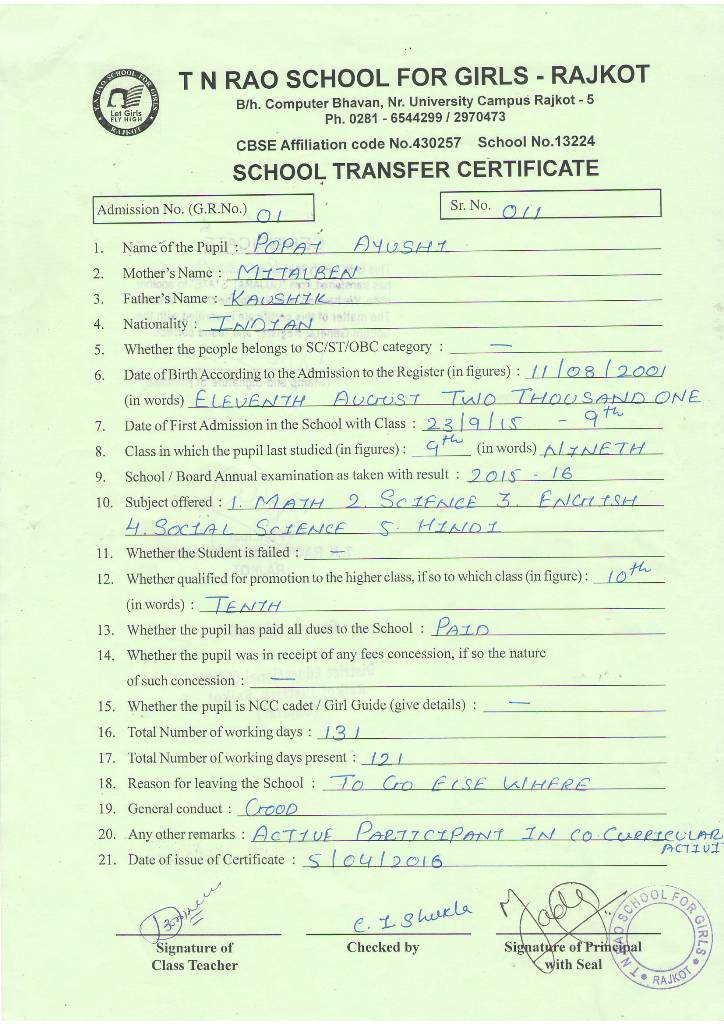 T N RAO SCHOOL FOR GIRLS - RAJKOT
T. N. RAO SCHOOL FOR GIRLS
Let Girls
FLY HIGH
RAJKOT
B/h. Computer Bhavan, Nr. University Campus Rajkot - 5
Ph. 0281 - 6544299 / 2970473
CBSE Affiliation code No.430257 School No.13224
SCHOOL TRANSFER CERTIFICATE
Admission No. (G.R.No.) 01
Sr. No. 011
1. Name of the Pupil : POPAT AYUSHI
2. Mother's Name : MITALBEN
3. Father's Name : KAUSHIK
4. Nationality : INDIAN
5. Whether the people belongs to SC/ST/OBC category : —
6. Date of Birth According to the Admission to the Register (in figures) : 11/08/2001
(in words) ELEVENTH AUGUST TWO THOUSAND ONE
7. Date of First Admission in the School with Class : 23/9/15 - 9th
8. Class in which the pupil last studied (in figures) : 9th (in words) NINETH
9. School / Board Annual examination as taken with result : 2015 - 16
10. Subject offered : 1. MATH 2. SCIENCE 3. ENGLISH
4. SOCIAL SCIENCE 5. HINDI
11. Whether the Student is failed : —
12. Whether qualified for promotion to the higher class, if so to which class (in figure) : 10th
(in words) : TENTH
13. Whether the pupil has paid all dues to the School : PAID
14. Whether the pupil was in receipt of any fees concession, if so the nature
of such concession : —
15. Whether the pupil is NCC cadet / Girl Guide (give details) : —
16. Total Number of working days : 131
17. Total Number of working days present : 121
18. Reason for leaving the School : TO GO ELSE WHERE
19. General conduct : GOOD
20. Any other remarks : ACTIVE PARTICIPANT IN CO-CURRICULAR
ACTIVIT
21. Date of issue of Certificate : 5/04/2016
C. I Shukla
Signature of
Class Teacher
Checked by
Signature of Principal
with Seal
T N RAO SCHOOL FOR GIRLS
RAJKOT